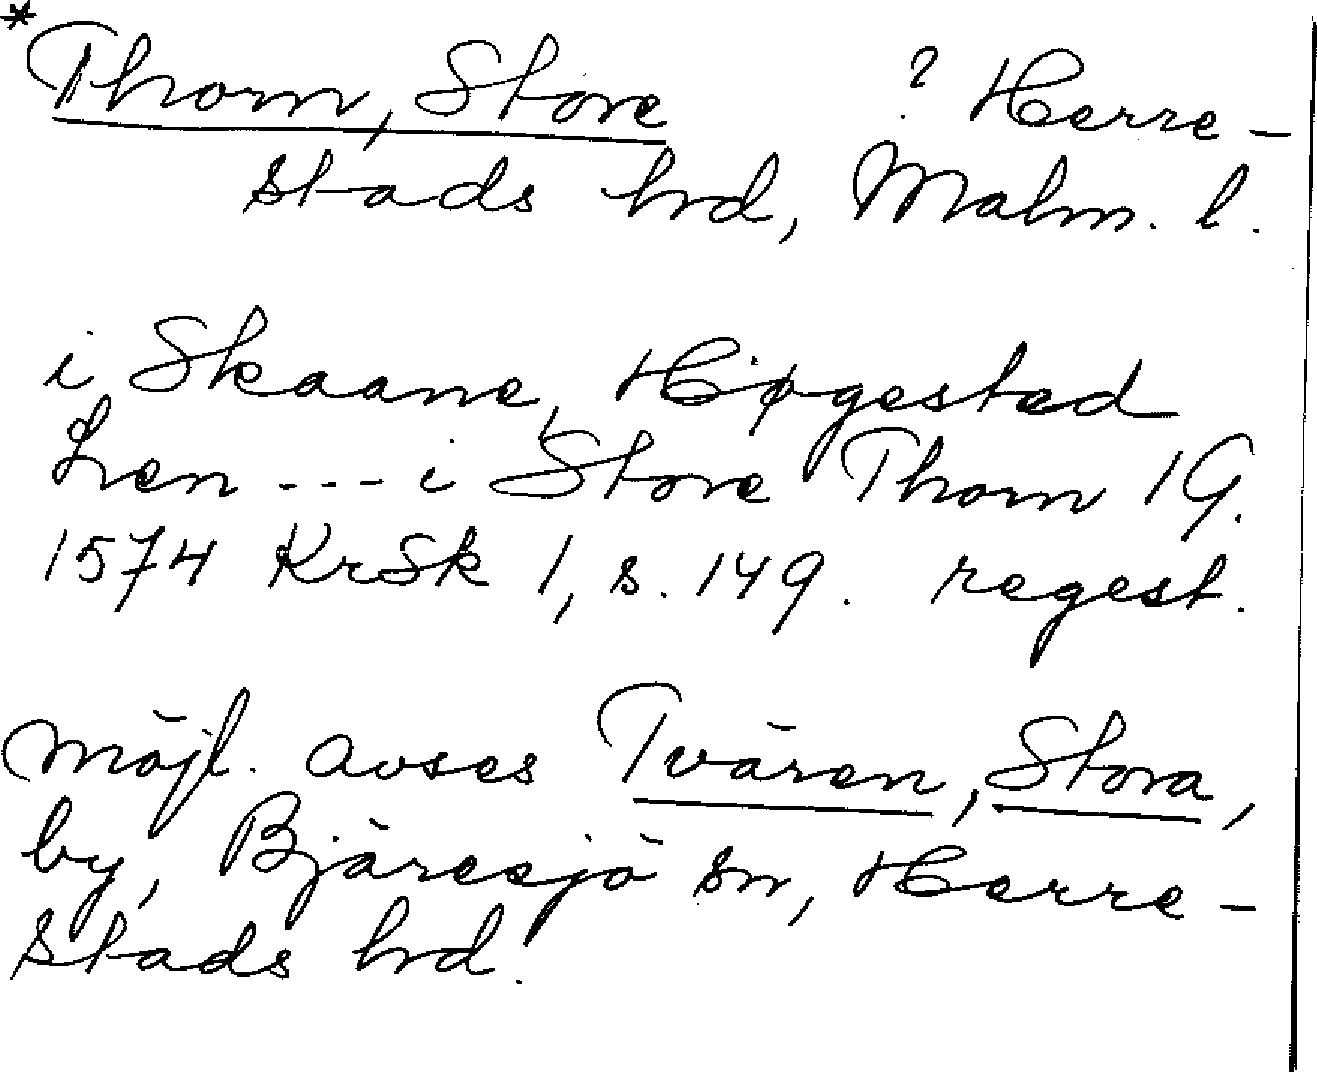 *Thorn, Store ? Herre-
stads hrd, Malm. l.
i Skaane, Høgested
Len --- i Store Thorn 1G.
1574 KrSk 1, s. 149. regest.
möjl. avses Tvären, Stora,
by, Bjäresjö sn, Herre-
stads hrd.